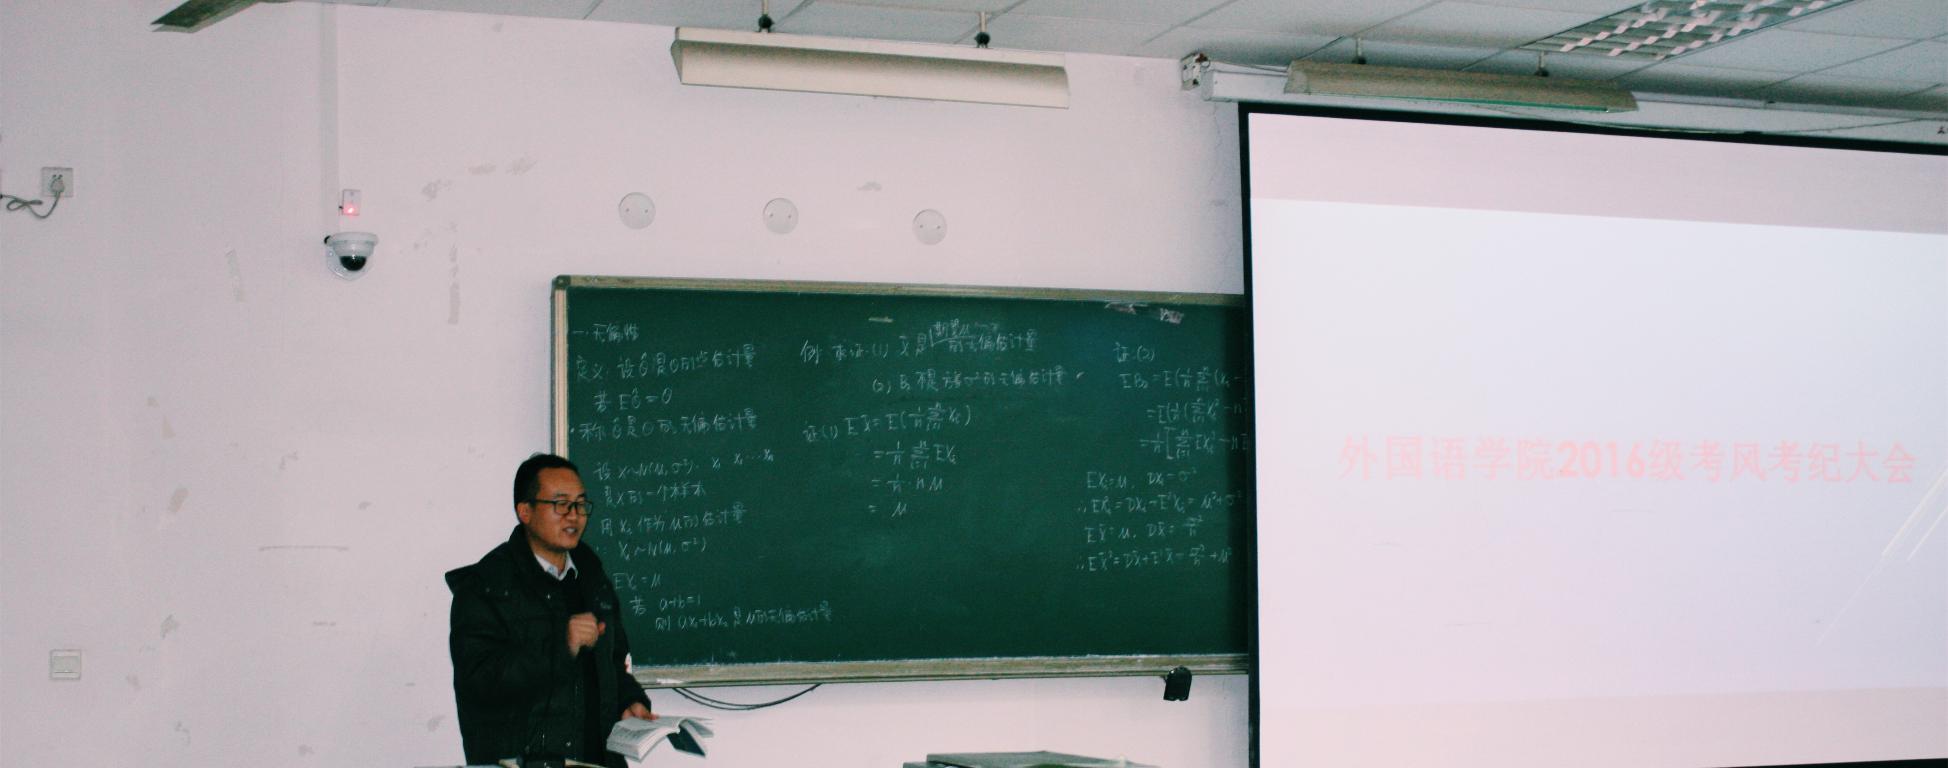 一. 无偏性
定义: 设θ̂是θ的一个估计量
若 Eθ̂=θ
称θ̂是θ的无偏估计量
设 X~N(μ,σ²), X₁ X₂…Xₙ
是X的一个样本
用 Xᵢ 作为μ的估计量
Xᵢ~N(μ,σ²)
EXᵢ=μ
若 a+b=1
则 aX₁+bX₂是μ的无偏估计量
例: 求证: (1) X̄是期望μ的无偏估计量
(2) B₂不是方差σ²的无偏估计量
证:(1) EX̄=E(1/n ΣXᵢ)
=1/n ΣEXᵢ
=1/n·nμ
=μ
证:(2)
EB₂=E(1/n Σ(Xᵢ-
=E(1/n(ΣXᵢ²-n
=1/n[ΣEXᵢ²-nE
EXᵢ=μ, DXᵢ=σ²
∴EXᵢ²=DXᵢ+E²Xᵢ=μ²+σ²
EX̄=μ, DX̄=σ²/n
∴EX̄²=DX̄+E²X̄=σ²/n+μ²
外国语学院2016级考风考纪大会